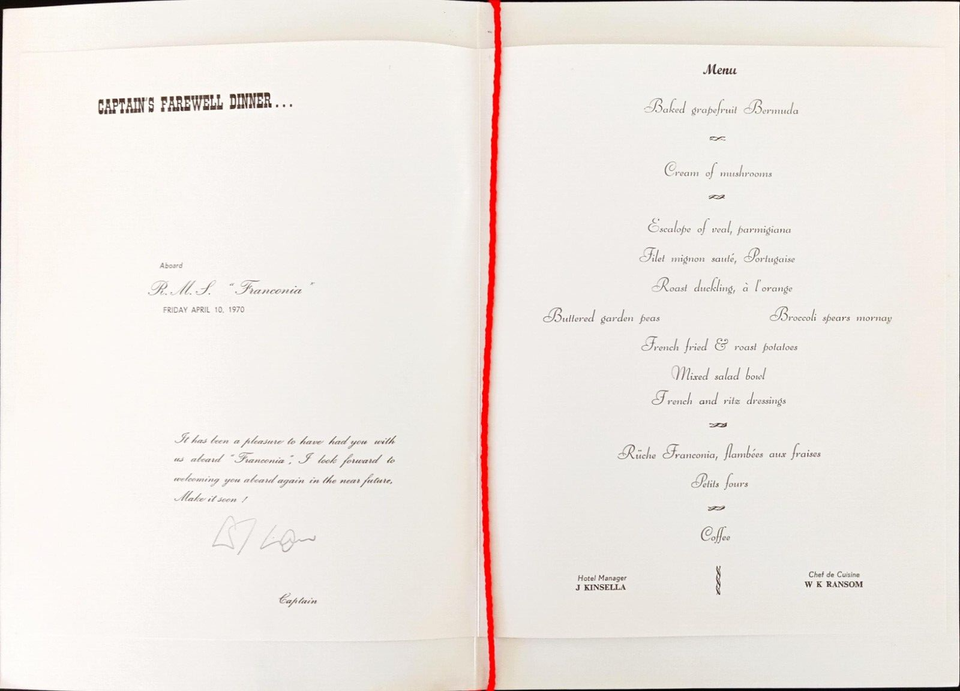 CAPTAIN'S FAREWELL DINNER...
Aboard
R.M.S. "Franconia"
FRIDAY APRIL 10, 1970
It has been a pleasure to have had you with
us aboard "Franconia", I look forward to
welcoming you aboard again in the near future,
Make it soon !
Captain
Menu
Baked grapefruit Bermuda
Cream of mushrooms
Escalope of veal, parmigiana
Filet mignon sauté, Portugaise
Roast duckling, à l'orange
Buttered garden peas Broccoli spears mornay
French fried & roast potatoes
Mixed salad bowl
French and ritz dressings
Rüche Franconia, flambées aux fraises
Petits fours
Coffee
Hotel Manager
J KINSELLA
Chef de Cuisine
W K RANSOM